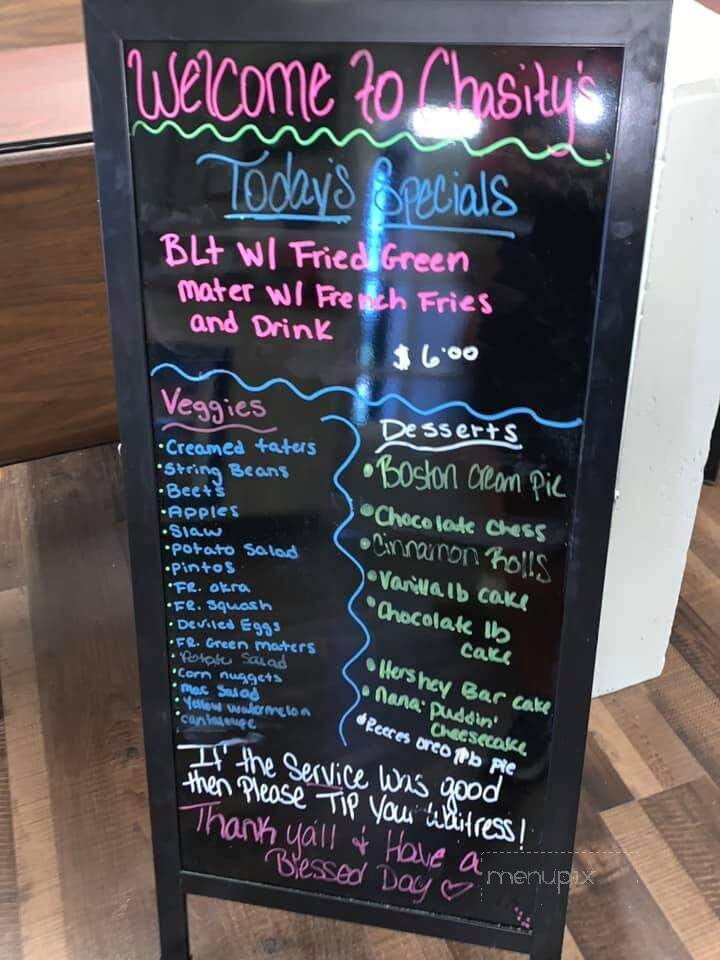 Welcome to Chasity's
Today's Specials
BLt w/ Fried Green
mater w/ French Fries
and Drink
$ 6.00
Veggies
• Creamed taters
• String Beans
• Beets
• Apples
• Slaw
• potato Salad
• pintos
• FR. okra
• FR. Squash
• Deviled Eggs
• FR. Green maters
• Potato Salad
• Corn nuggets
• mac Salad
• Yellow watermelon
• cantaloupe
Desserts
• Boston cream pie
• Chocolate chess
• Cinnamon Rolls
• Vanilla lb cake
• Chocolate lb
cake
• Hershey Bar cake
• nana' puddin'
cheesecake
• Reeces oreo pb pie
If the Service was good
then Please TIP Your Waitress!
Thank ya'll & Have a
Blessed Day ♡
menupix